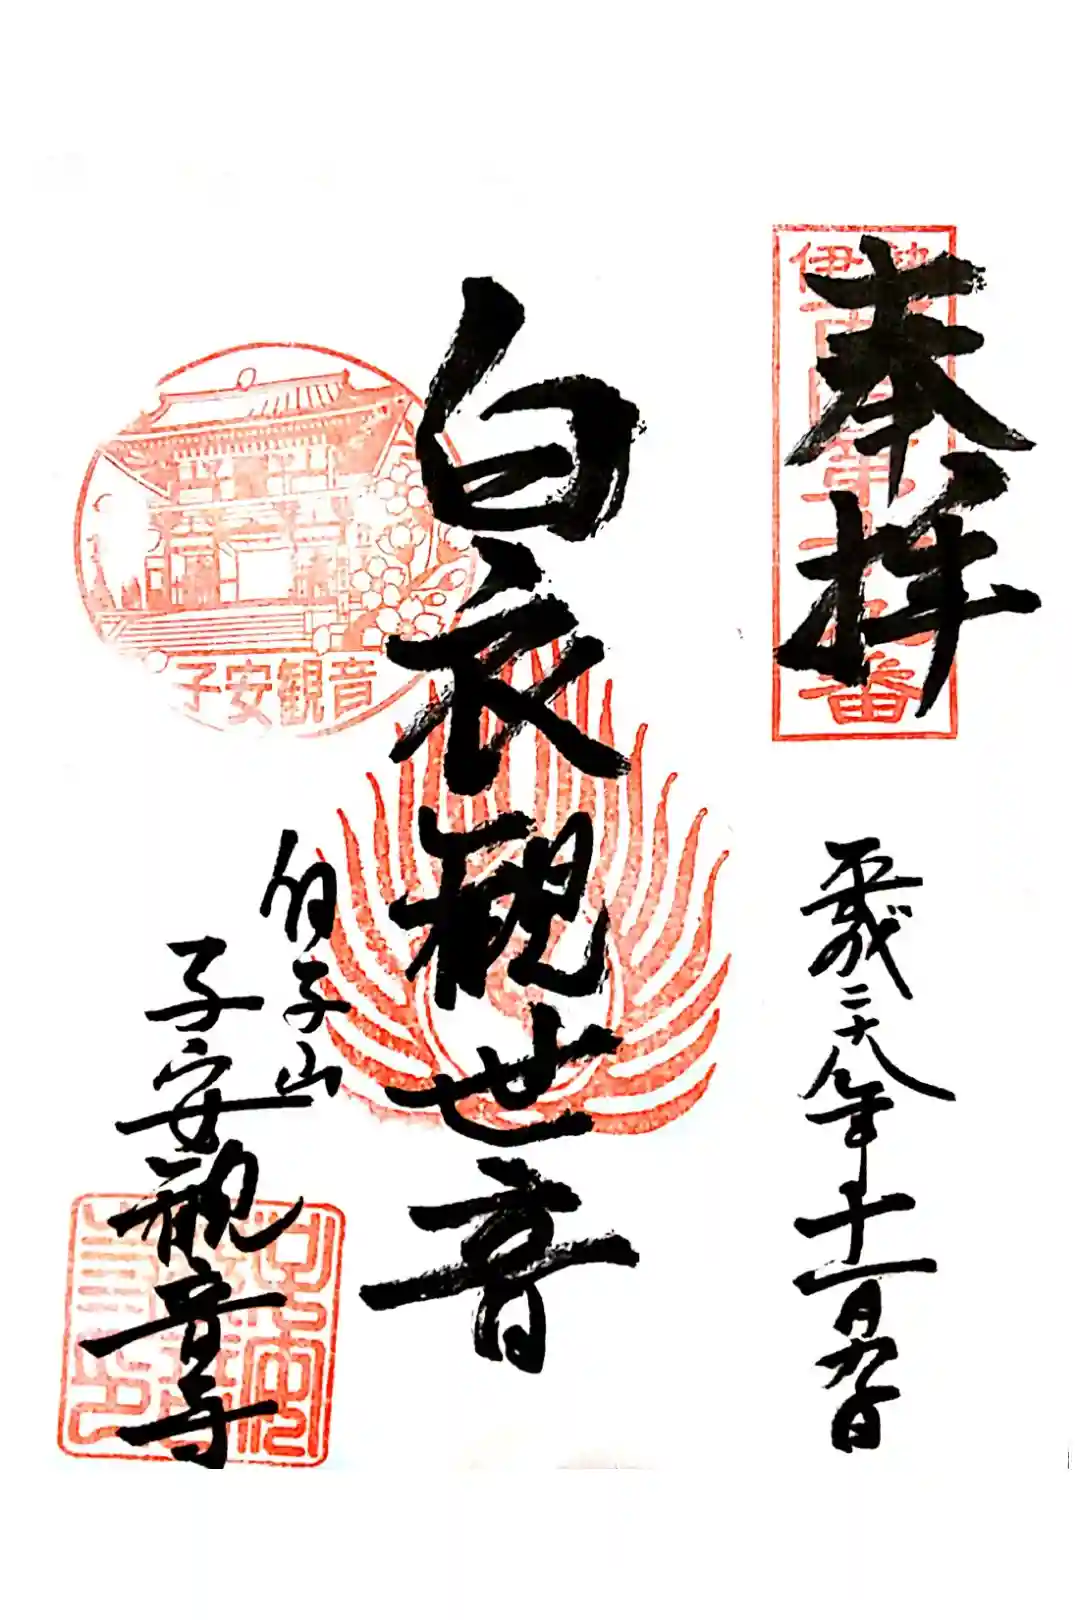 奉拝
平成二十八年十一月九日
白衣観世音
白子山
子安観音寺
子安観音